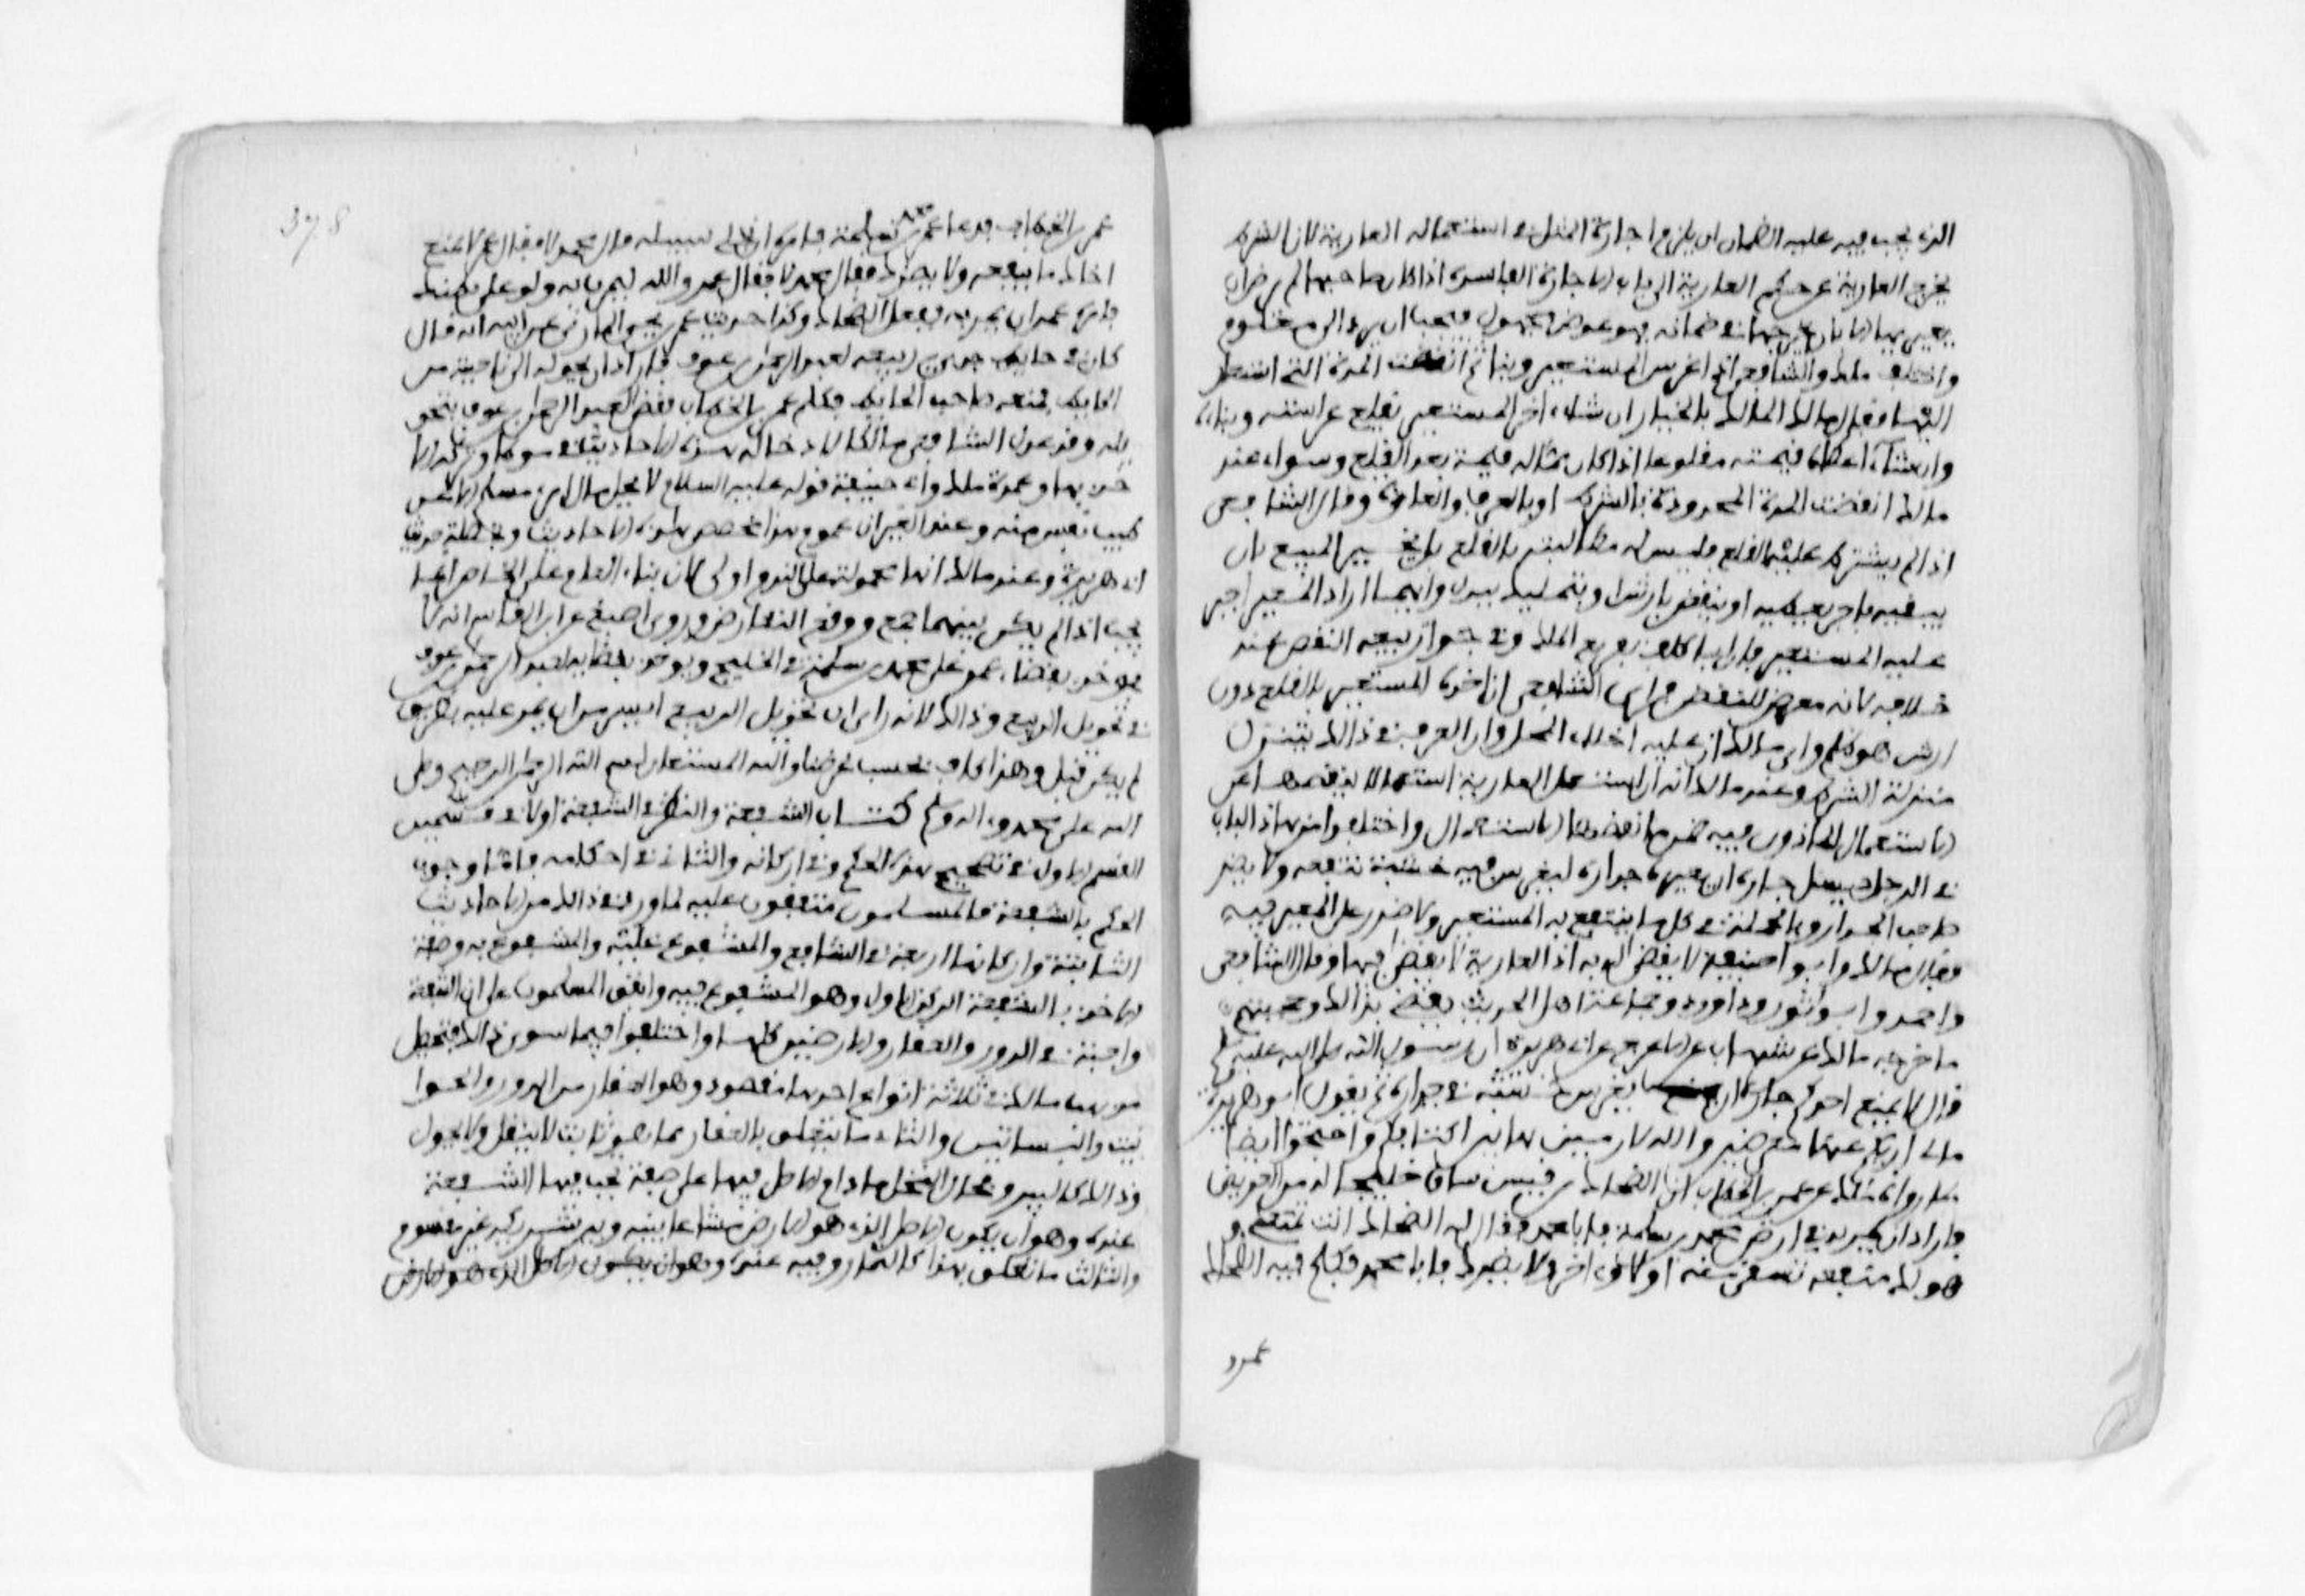 الذي يجب فيه عليه الضمان ان يلزم اجارة المثل في استعماله العارية لان الشرط
يخرج العارية عن حكم العارية الى باب الاجارة الفاسدة اذا كان صاحبها لم يرض ان
يعيرها الا بان يخرجها في ضمانه فهو عوض مجهول فيجب ان يرد الى معلوم
واختلف ملك والشافعي اذا غرس المستعير وبنا ثم انقضت المدة التي استعار
اليها فقال مالك المالك بالخيار ان شاء اخذ المستعير بقلع غراسته وبنائه
وان شاء اعطاه قيمته مقلوعا اذا كان مما له قيمة بعد القلع وسواء عند
مالك انقضت المدة المحدودة بالشرط او بالعرف او العادة وقال الشافعي
اذا لم يشترط عليه القلع فليس له مطالبته بالقلع بل يخير المعير بان
يبقيه باجر يعطيه او ينقض بارش او يتملك ببدل وايهما اراد المعير اجبر
عليه المستعير فان ابا كلف تفريغ الملك وفي جواز بيعه النقض عنده
خلاف لانه معرض للنقض فراى الشافعي ان اخذه المستعير بالقلع دون
ارش هو ظلم وراى مالك ان عليه اخلاء المحل وان العرف في ذالك يتنزل
منزلة الشرط وعند مالك انه ان استعمل العارية استعمالا ينقصها عن
الاستعمال الماذون فيه ضمن ما نقصها الاستعمال واختلفوا من هذا الباب
في الرجل يسل جاره ان يعيره جداره ليغرس فيه خشبة تنفعه ولا يضر
صاحب الجدار وبالجملة في كل ما ينتفع به المستعير ولا ضرر على المعير فيه
فقال مالك وابو حنيفة لا يقضى له به اذ العارية لا يقضى بها وقال الشافعي
واحمد وابو ثور وداوود وجماعة اهل الحديث يقضى بذالك وحجتهم
ما خرجه مالك عن شهاب عن الاعرج عن ابي هريرة ان رسول الله صلى الله عليه وسلم
قال لا يمنع احدكم جاره ان يغرس خشبة في جداره ثم يقول ابو هريرة
مالي اراكم عنها معرضين والله لارمين بها بين اكتافكم واحتجوا ايضا
بما رواه ملك عن عمر بن الخطاب ان الضحاك بن قيس ساق خليجا له من العريض
فاراد ان يمر به في ارض محمد بن مسلمة فابا محمد فقال له الضحاك انت تمنعني و
هو لك منفعة تسقي منه اولا واخرا ولا يضرك فابا محمد فكلم فيه الضحاك
عمر
378
عمر بن الخطاب فدعا عمر محمد بن مسلمة فامره ان يخلي سبيله قال محمد لا فقال عمر لا تمنع
اخاك ما ينفعه ولا يضرك فقال محمد لا فقال عمر والله ليمرن به ولو على بطنك
فامره عمر ان يمر به ففعل الضحاك وكذا حديث عمر بن يحيى المازني عن ابيه انه قال
كان في حايط جده ربيع لعبد الرحمن بن عوف فاراد ان يحوله الى ناحية من
الحايط فمنعه صاحب الحايط فكلم عمر بن الخطاب فقضى لعبد الرحمن بن عوف بتحو
يله وقد عذل الشافعي مالكا لادخاله هذه الاحاديث في موطاه وتركه الا
خذ بها وعمدة ملك وابي حنيفة قوله عليه السلام لا يحل مال امرئ مسلم الا عن
طيب نفس منه وعند الغير ان عموم هذا مخصص بهذه الاحاديث وبخاصة حديث
ابي هريرة وعند مالك انها محمولة على الندب اولى كان بناء العام على الخاص انما
يجب اذا لم يكن بينهما جمع ووقع التعارض وروى اصبغ عن ابن القاسم انه لا
يوخذ بقضاء عمر على محمد بن مسلمة في الخليج ويوخذ بقضايه لعبد الرحمن بن عوف
في تحويل الربيع وذالك لانه راى ان تحويل الربيع ايسر من ان يمر عليه بطريق
لم يكن قبل وهذا كاف بحسب غرضنا والله المستعان بسم الله الرحمن الرحيم وصلى
الله على محمد واله وسلم كتاب الشفعة والنظر في الشفعة اولا في قسمين
القسم الاول في تصحيح هذا الحكم وفي اركانه والثاني في احكامه فاما وجوب
الحكم بالشفعة فالمسلمون متفقون عليه لما ورد في ذالك من الاحاديث
الثابتة واركانها اربعة في الشافع والمشفوع عليه والمشفوع به وصفة
الاخذ بالشفعة الركن الاول وهو المشفوع فيه واتفق المسلمون على ان الشفعة
واجبة في الدور والعقار والارضين كلها واختلفوا فيما سوى ذالك فتحصل
مذهب مالك في ثلاثة انواع احدها مقصود وهو العقار من الدور والحوا
نيت والبساتين والثاني ما يتعلق بالعقار مما هو ثابت لا ينقل ولا يحول
وذالك كالبير ومحال النخل ما دام الاصل فيها على صفة تجب فيها الشفعة
عنده وهو ان يكون الاصل الذي هو الارض مشاعا بينه وبين شريكه غير مقسوم
والثالث ما تعلق بهذا كالثمار وفيه عنده وهو ان يكون الاصل الذي هو الارض